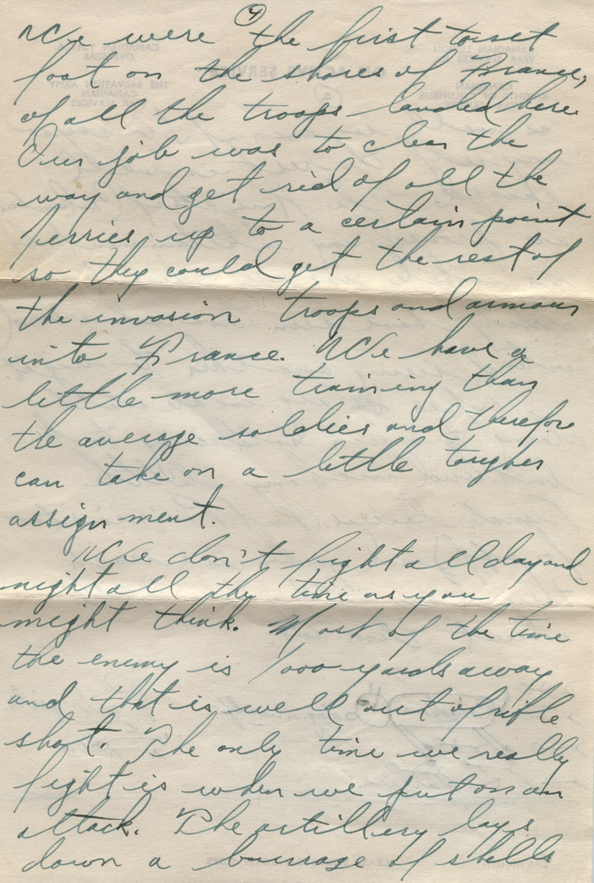 (4)
We were the first to set
foot on the shores of France,
of all the troops landed here.
Our job was to clear the
way and get rid of all the
Jerries up to a certain point
so they could get the rest of
the invasion troops and armour
into France. We have a
little more training than
the average soldier and therefore
can take on a little tougher
assignment.
We don't fight all day and
night all the time as you
might think. Most of the time
the enemy is 1000 yards away
and that is well out of rifle
shot. The only time we really
fight is when we put on an
attack. The artillery lays
down a burrage of shells